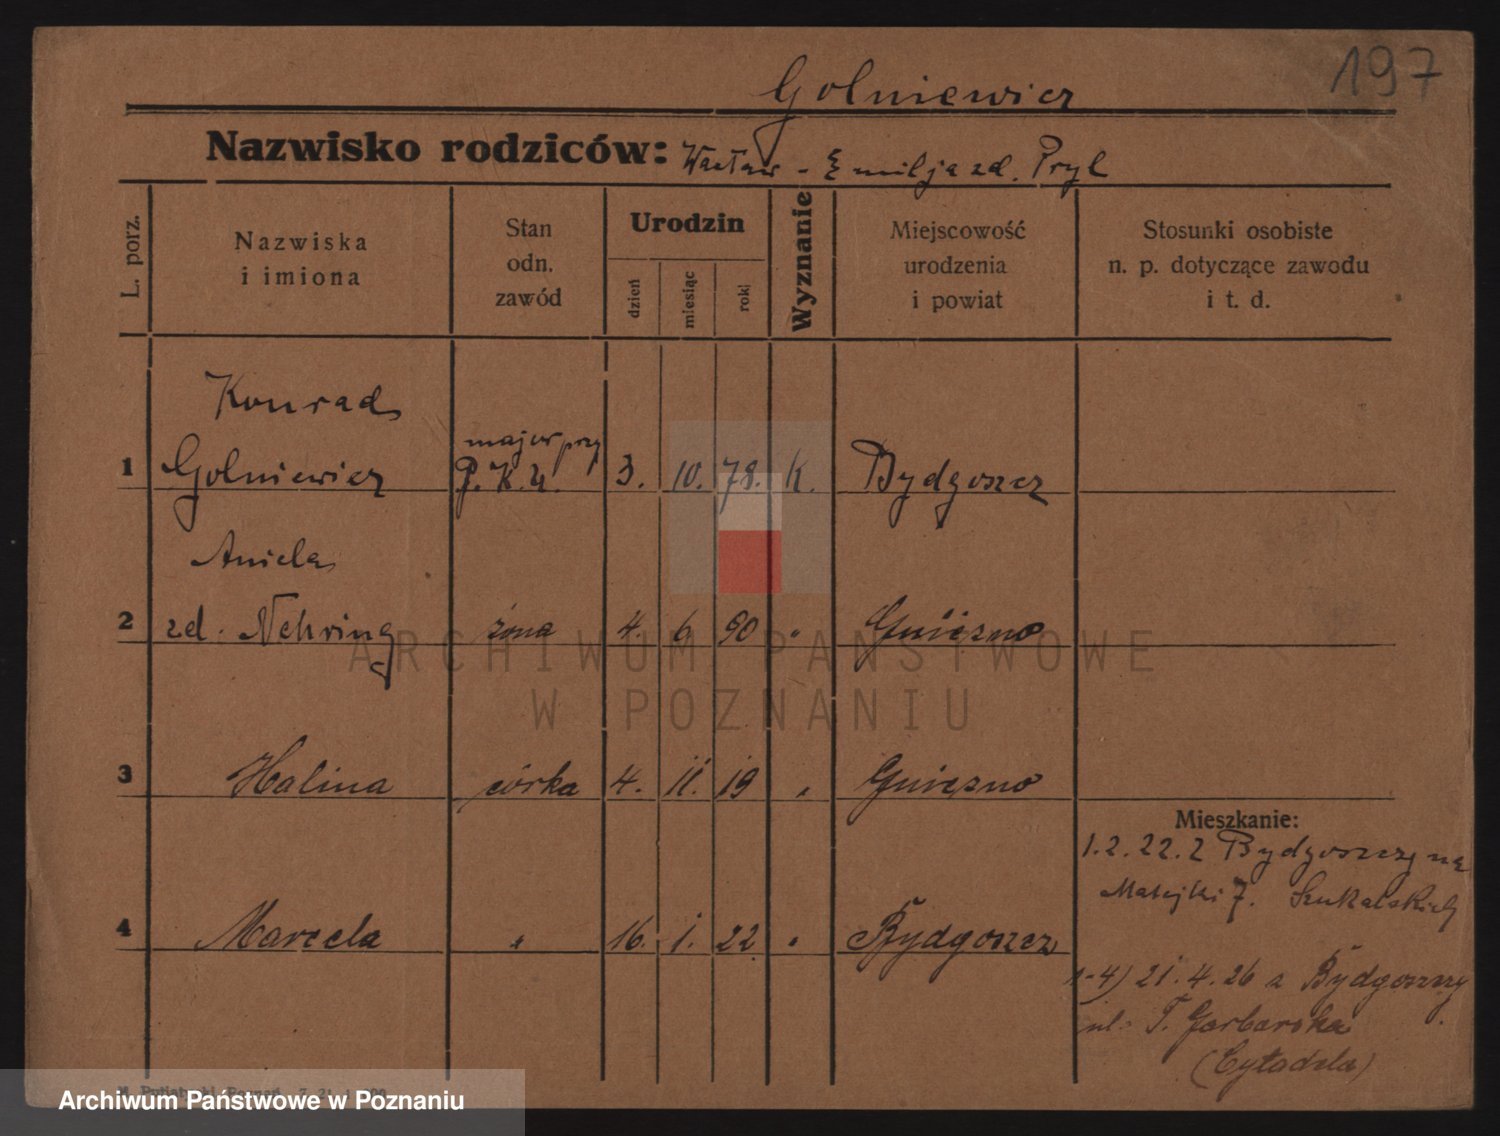 197
Golniewicz
Nazwisko rodziców: Wacław - Emilja zd. Pryl
L. porz.
Nazwiska
i imiona
Stan
odn.
zawód
Urodzin
dzień
miesiąc
rok
Wyznanie
Miejscowość
urodzenia
i powiat
Stosunki osobiste
n. p. dotyczące zawodu
i t. d.
Konrad
major przy
1 Golniewicz P.K.U. 3. 10. 78. k. Bydgoszcz
Aniela
2 zd. Nehring żona 4. 6 90 " Gniezno
3 Halina córka 4. 11. 19 " Gniezno
Mieszkanie:
1.2.22. z Bydgoszczy na
Matejki 7.
4 Marcela " 16. 1. 22 " Bydgoszcz
1-4) 21.4.26 z Bydgoszczy
ul. T. Garbarska
(Cytadela)
ARCHIWUM PAŃSTWOWE
W POZNANIU
Archiwum Państwowe w Poznaniu